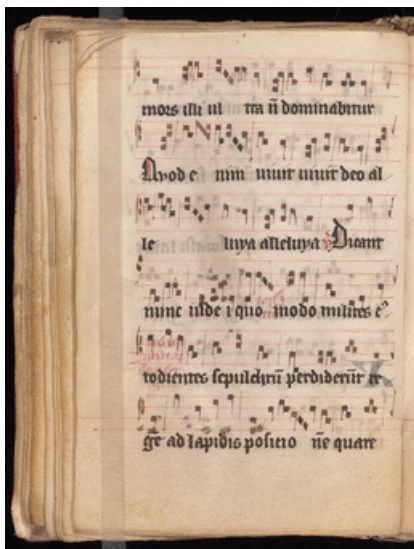 mors illi ul tra n̄ dominabitur
Quod e nim uiuit uiuit deo al
le luya alleluya Dicant
nunc iude i quo modo milites c᷒
todientes sepulchrū perdiderūt re
gē ad lapidis positio nē quare